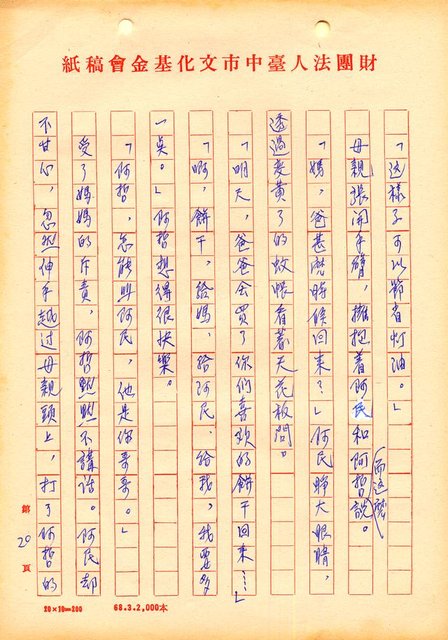 財團法人臺中市文化基金會稿紙
「这樣子可以節省灯油。」
母親張開手臂，擁抱着阿民和阿哲而這麼說。
「媽，爸甚麼時候回来？」阿民睜大眼睛，
透過变黄了的蚊帳看著天花板問。
「明天，爸爸会買了你们喜欢的餅干回来……」
「啊，餅干，給媽，給阿民，給我，我要多
一桌。」阿哲想得很快樂。
「阿哲，怎能叫阿民，他是你哥哥。」
受了媽媽的斥責，阿哲默默不講话。阿民却
不甘心，忽然伸手越过母親頭上，打了阿哲的
第20頁
20×10=200
68.3.2,000本